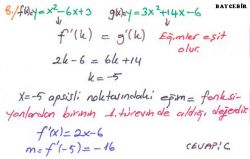 BAYCEBİR
8./ f(x)=y=x²-6x+3 g(x)=y=3x²+14x-6
f'(k) = g'(k) Eğimler eşit
olur.
2k-6 = 6k+14
k=-5
x=-5 apsisli noktasındaki eğim = fonksi-
yonlardan birinin 1. türevinde aldığı değerdir
f'(x) = 2x-6
m=f'(-5) = -16
CEVAP: C